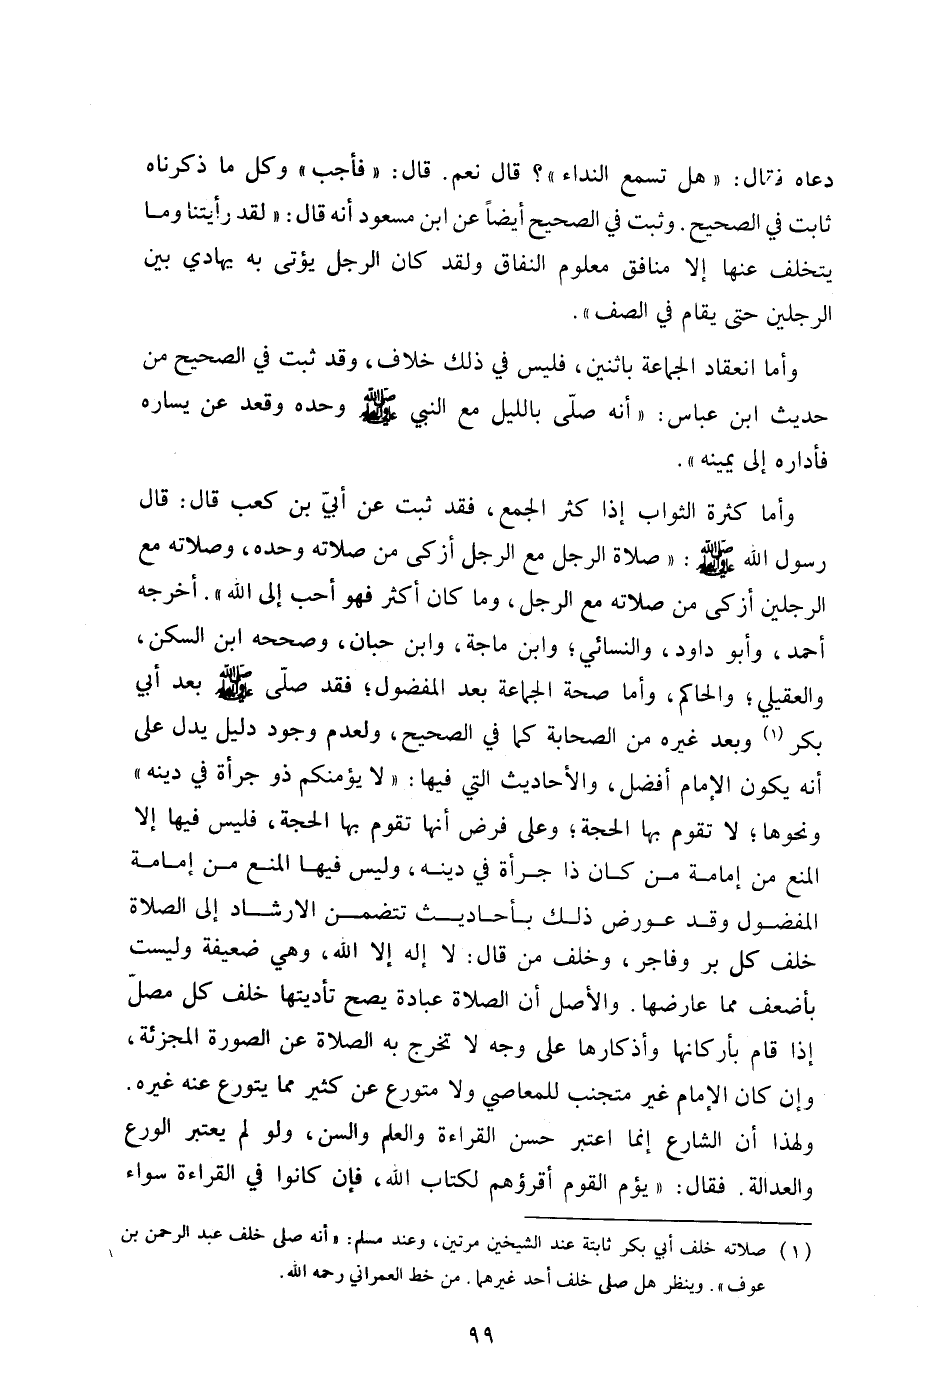 دعاه فقال: « هل تسمع النداء »؟ قال نعم. قال: « فأجب » وكل ما ذكرناه
ثابت في الصحيح. وثبت في الصحيح أيضاً عن ابن مسعود أنه قال: « لقد رأيتنا وما
يتخلف عنها إلا منافق معلوم النفاق ولقد كان الرجل يؤتى به يهادي بين
الرجلين حتى يقام في الصف ».
وأما انعقاد الجماعة باثنين، فليس في ذلك خلاف، وقد ثبت في الصحيح من
حديث ابن عباس: « أنه صلّى بالليل مع النبي ﷺ وحده وقعد عن يساره
فأداره إلى يمينه ».
وأما كثرة الثواب إذا كثر الجمع، فقد ثبت عن أبيّ بن كعب قال: قال
رسول الله ﷺ : « صلاة الرجل مع الرجل أزكى من صلاته وحده، وصلاته مع
الرجلين أزكى من صلاته مع الرجل، وما كان أكثر فهو أحب إلى الله ». أخرجه
أحمد، وأبو داود، والنسائي؛ وابن ماجة، وابن حبان، وصححه ابن السكن،
والعقيلي؛ والحاكم، وأما صحة الجماعة بعد المفضول؛ فقد صلّى ﷺ بعد أبي
بكر (١) وبعد غيره من الصحابة كما في الصحيح، ولعدم وجود دليل يدل على
أنه يكون الإمام أفضل، والأحاديث التي فيها: « لا يؤمنكم ذو جرأة في دينه »
ونحوها؛ لا تقوم بها الحجة؛ وعلى فرض أنها تقوم بها الحجة، فليس فيها إلا
المنع من إمامة من كان ذا جرأة في دينه، وليس فيها المنع من إمامة
المفضول وقد عورض ذلك بأحاديث تتضمن الارشاد إلى الصلاة
خلف كل بر وفاجر، وخلف من قال: لا إله إلا الله، وهي ضعيفة وليست
بأضعف مما عارضها. والأصل أن الصلاة عبادة يصح تأديتها خلف كل مصلّ
إذا قام بأركانها وأذكارها على وجه لا تخرج به الصلاة عن الصورة المجزئة،
وإن كان الإمام غير متجنب للمعاصي ولا متورع عن كثير مما يتورع عنه غيره.
ولهذا أن الشارع إنما اعتبر حسن القراءة والعلم والسن، ولو لم يعتبر الورع
والعدالة. فقال: « يؤم القوم أقرؤهم لكتاب الله، فإن كانوا في القراءة سواء
(١) صلاته خلف أبي بكر ثابتة عند الشيخين مرتين، وعند مسلم: « أنه صلى خلف عبد الرحمن بن
عوف ». وينظر هل صلى خلف أحد غيرهما. من خط العمراني رحمه الله.
٩٩